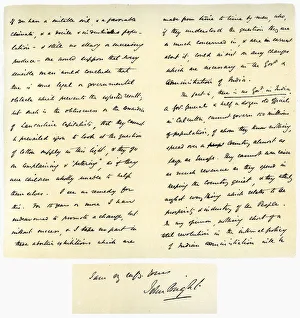 If we have a suitable soil & a favorable
climate, & a docile & industrious popu-
lation - & still no steady or increasing
produce - One would suppose that every
sensible man would conclude that
there is some legal or governmental
obstacle which prevents the expected result,
but such is the obtuseness in the minds of
Lancashire Capitalists, that they cannot
be prevailed upon to look at the question
of Cotton supply in this light, & they go
on complaining & "pottering" as if they
were children wholly unable to help
themselves. I see no remedy for
this. For 10 years or more I have
endeavored to promote a change, but
without success, & I hope no part in
these abortive exhibitions which are
made from time to time by men, who,
if they understood the question they are
so much concerned in, & were in earnest
about it, could insist on any changes
which are necessary in the Govt. or
Administration of India.
The fact is, there is no Govt. in India.
A Govr. General & half a dozen old Officials
in Calcutta, cannot govern 150 millions
of population, of whom they know nothing,
spread over a country almost as
large as Europe. They cannot even raise
as much revenue as they spend in
keeping the Country quiet, & they utterly
neglect everything which relates to the
prosperity & industry of the People.
In my opinion, nothing short of a
real revolution in the internal policy
of Indian Administration will be
I am very truly yours
John Bright.